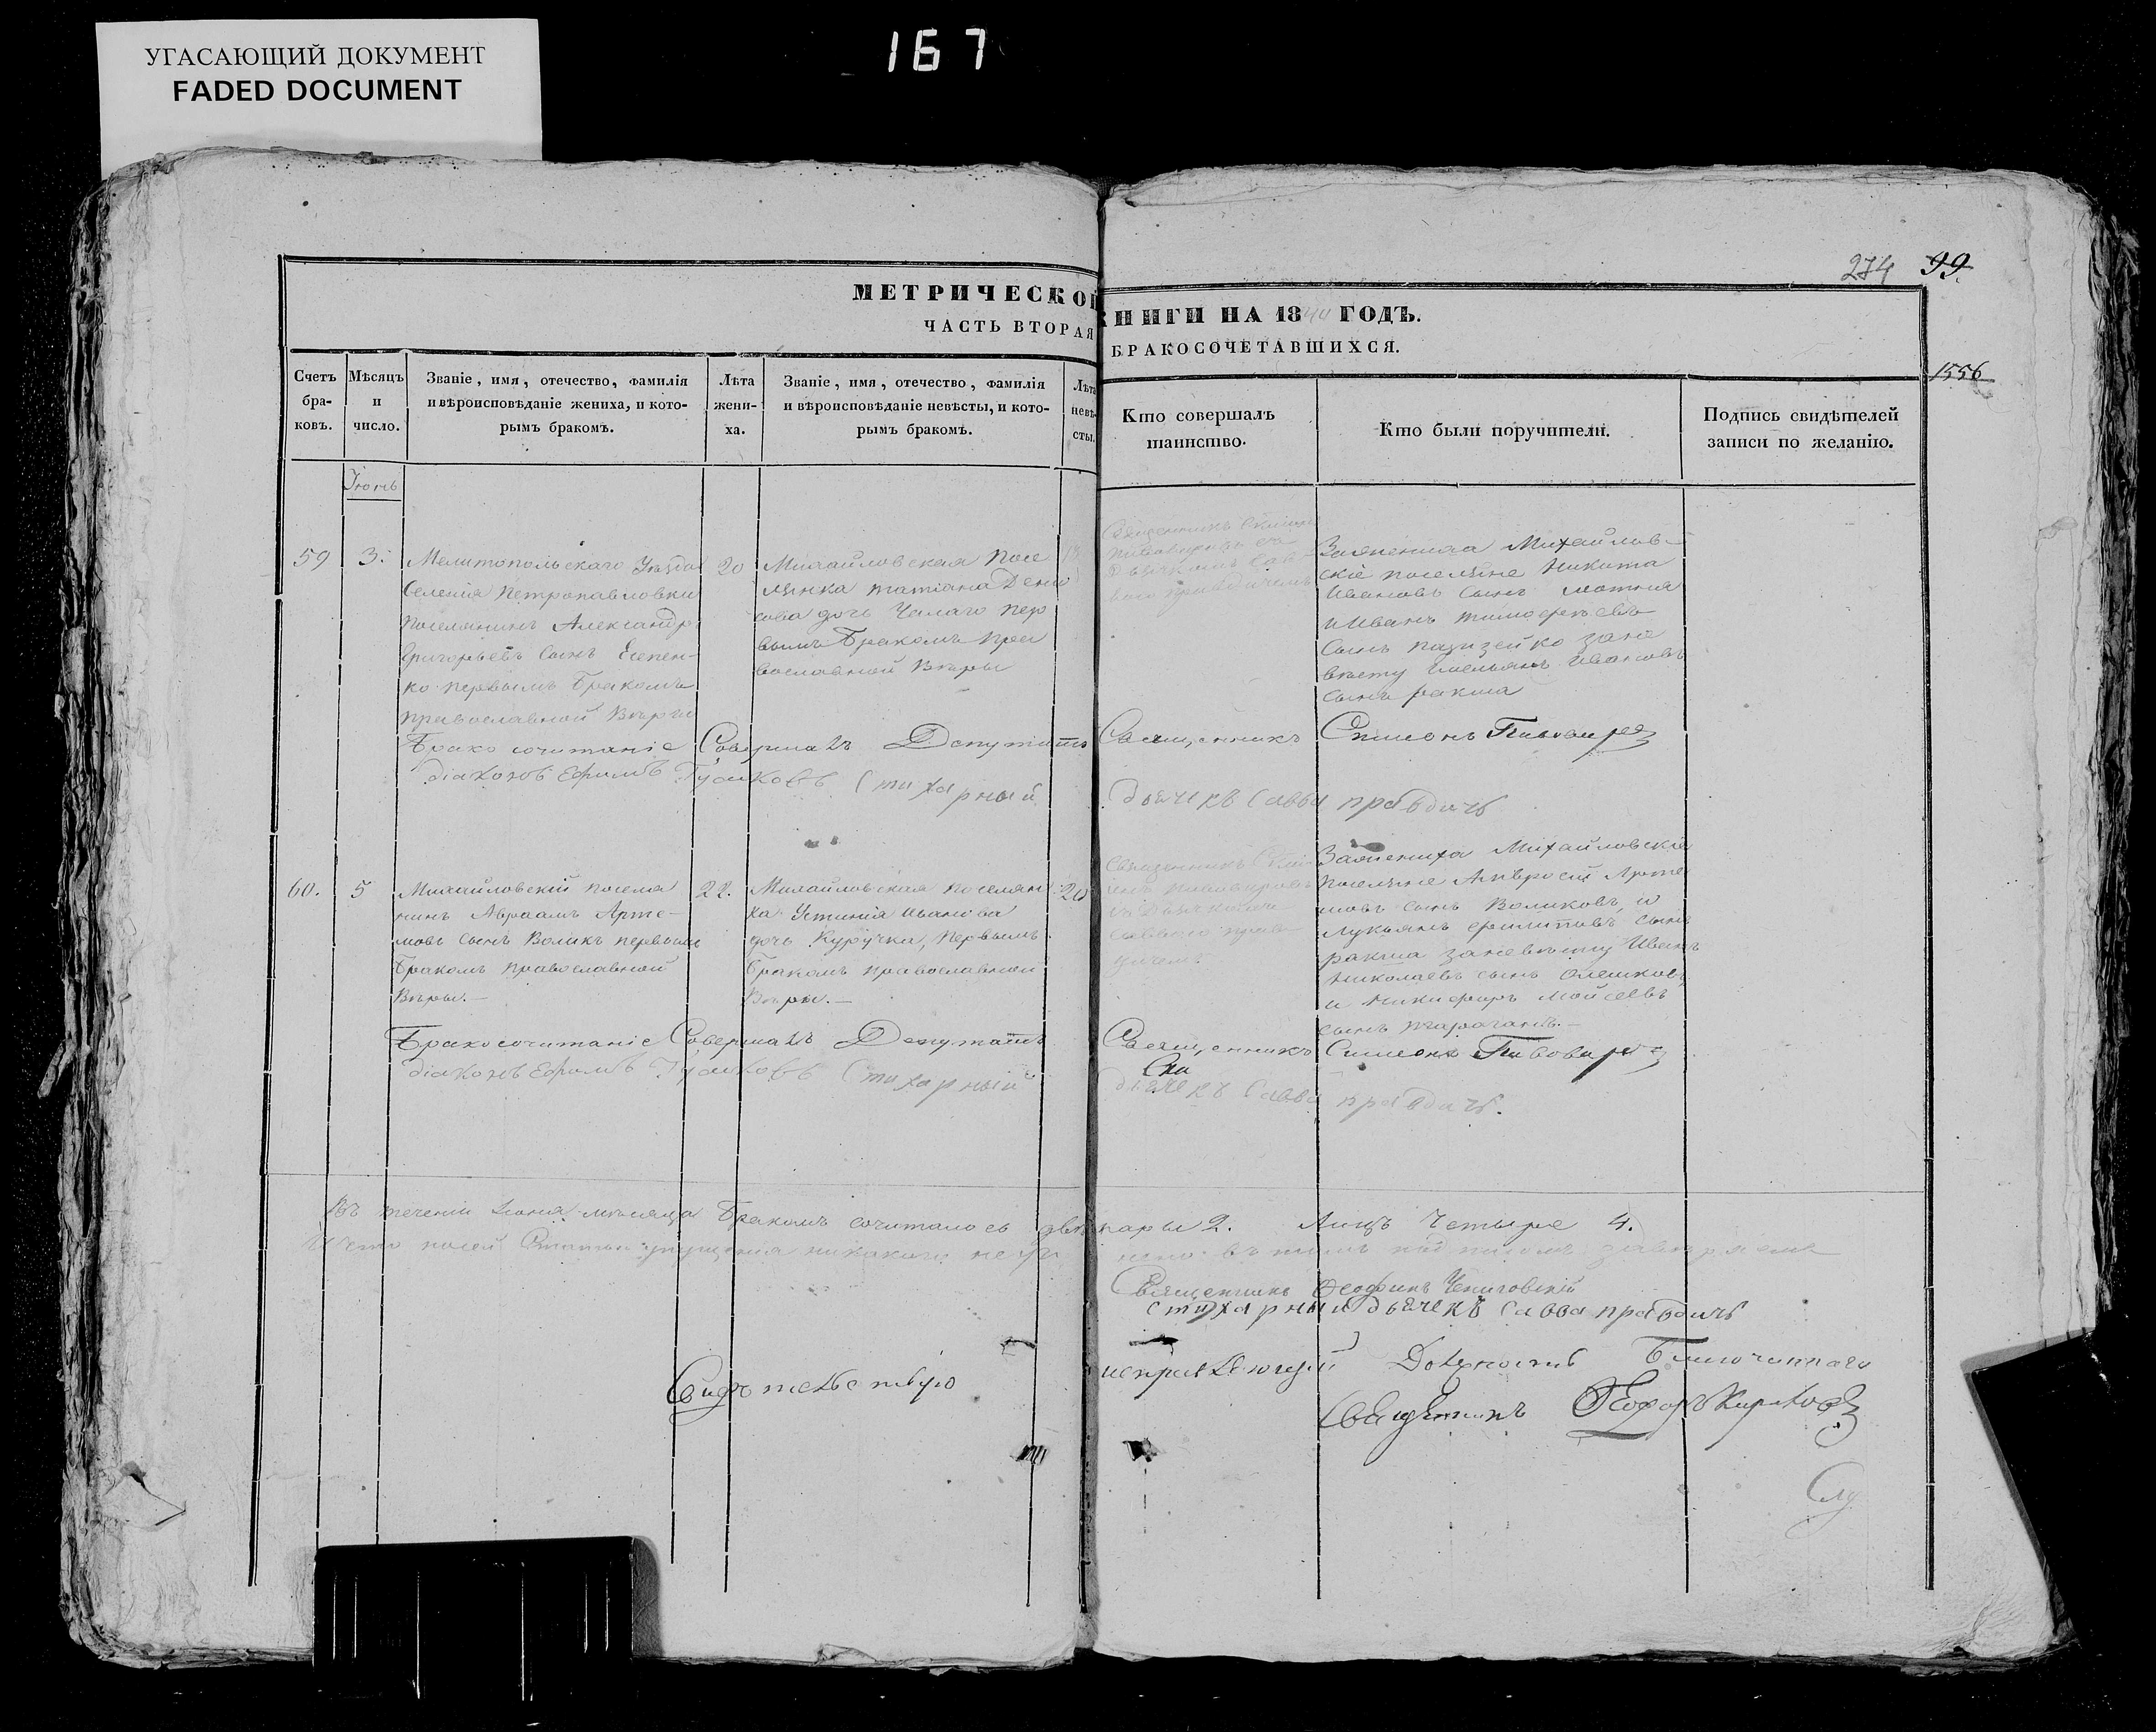 УГАСАЮЩИЙ ДОКУМЕНТ
FADED DOCUMENT
167
274 99
МЕТРИЧЕСКОЙ КНИГИ НА 1844 ГОДЪ.
ЧАСТЬ ВТОРАЯ БРАКОСОЧЕТАВШИХСЯ.
1556
Счетъ бра-ковъ.
Мѣсяцъ и число.
Званіе, имя, отечество, фамилія
и вѣроисповѣданіе жениха, и кото-
рымъ бракомъ.
Лѣта жени-ха.
Званіе, имя, отечество, фамилія
и вѣроисповѣданіе невѣсты, и кото-
рымъ бракомъ.
Лѣта невѣ-сты.
Кто совершалъ
таинство.
Кто были поручители.
Подпись свидѣтелей
записи по желанію.
Іюнь
59
3.
Мелитопольскаго Уѣзда
Селенія Петропавловки
поселянинъ Александръ
Григорьевъ сынъ Есепен-
ко первымъ бракомъ
православной Вѣры
20
Михайловская посе
лянка татіана Дени
сова дочь Чалаго пер
вымъ бракомъ пра
вославной Вѣры
Священникъ Симеонъ
Зажениха Михайлов-
скіе поселяне Никита
Ивановъ сынъ
и Иванъ тимофеевъ
сынъ зане
вѣсту Ивановъ
сынъ ракша
Бракосочитаніе Совершалъ Депутатъ Священникъ Симеонъ Пивоваровъ
діаконъ Ефимъ Гусаковъ Стихарный дьячекъ Савва правдичъ
60.
5
Михайловскій поселя
нинъ Авраамъ Арте-
мовъ сынъ Воликъ первымъ
бракомъ православной
Вѣры.—
22.
Михайловская поселян
ка Устинія Иванова
дочь Куручка, первымъ
бракомъ православной
Вѣры.—
20
Священникъ Симе
онъ Пивоваровъ
съ Дьячкомъ
Саввою прав
дичемъ
Зажениха Михайловскіе
поселяне Амвросій Арте
мовъ сынъ Воликовъ, и
Лукьянъ филиповъ сынъ
ракша заневѣсту Иванъ
Николаевъ сынъ Олешковъ
и Никифоръ Мойсеевъ
сынъ тараганъ.—
Бракосочитаніе Совершалъ Депутатъ Священникъ Симеонъ Пивоваровъ
діаконъ Ефимъ Гусаковъ Стихарный дьячекъ Савва правдичъ.
Въ теченіи Іюня мѣсяца бракомъ сочиталось двѣ пары 2. Лицъ Четыре 4.
Священникъ
стихарный дьячекъ Савва правдичъ
Свидѣтельствую исправляющій Должность Благочиннаго
Священникъ